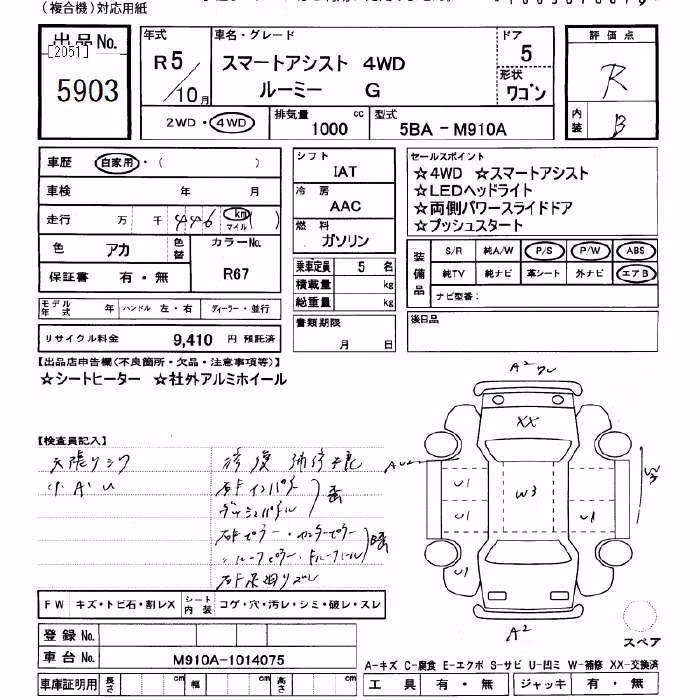 (複合機)対応用紙
出品No.
[2051]
5903
年式
R5/10月
車名・グレード
スマートアシスト 4WD
ルーミー G
ドア
5
形状
ワゴン
評価点
R
内装
B
2WD・4WD
排気量
1000 cc
型式
5BA-M910A
車歴 自家用・( )
車検 年 月
走行 万 千 446 km マイル ( )
色 アカ 色替
カラーNo.
R67
保証書 有・無
シフト
IAT
冷房
AAC
燃料
ガソリン
乗車定員 5 名
積載量 kg
総重量 kg
セールスポイント
☆4WD ☆スマートアシスト
☆LEDヘッドライト
☆両側パワースライドドア
☆プッシュスタート
装備品
S/R 純A/W P/S P/W ABS
純TV 純ナビ 革シート 外ナビ エアB
ナビ型番:
モデル年式 年 ハンドル 左・右 ディーラー・並行
リサイクル料金 9,410 円 預託済
書類期限
月 日
後日品
【出品店申告欄(不良箇所・欠品・注意事項等)】
☆シートヒーター ☆社外アルミホイール
【検査員記入】
天張りシワ
小A U
修復
右Fインパネ
ダッシュパネル
右Fピラー・センターピラー
ルーフピラー
A2
XX
U1
W3
U1
U1
U1
A2
スペア
FW キズ・トビ石・割レX シート内装 コゲ・穴・汚レ・シミ・破レ・スレ
登録No.
車台No. M910A-1014075
A-キズ C-腐食 E-エクボ S-サビ U-凹ミ W-補修 XX-交換済
車庫証明用 長さ cm 幅 cm 高さ cm
工具 有・無 ジャッキ 有・無